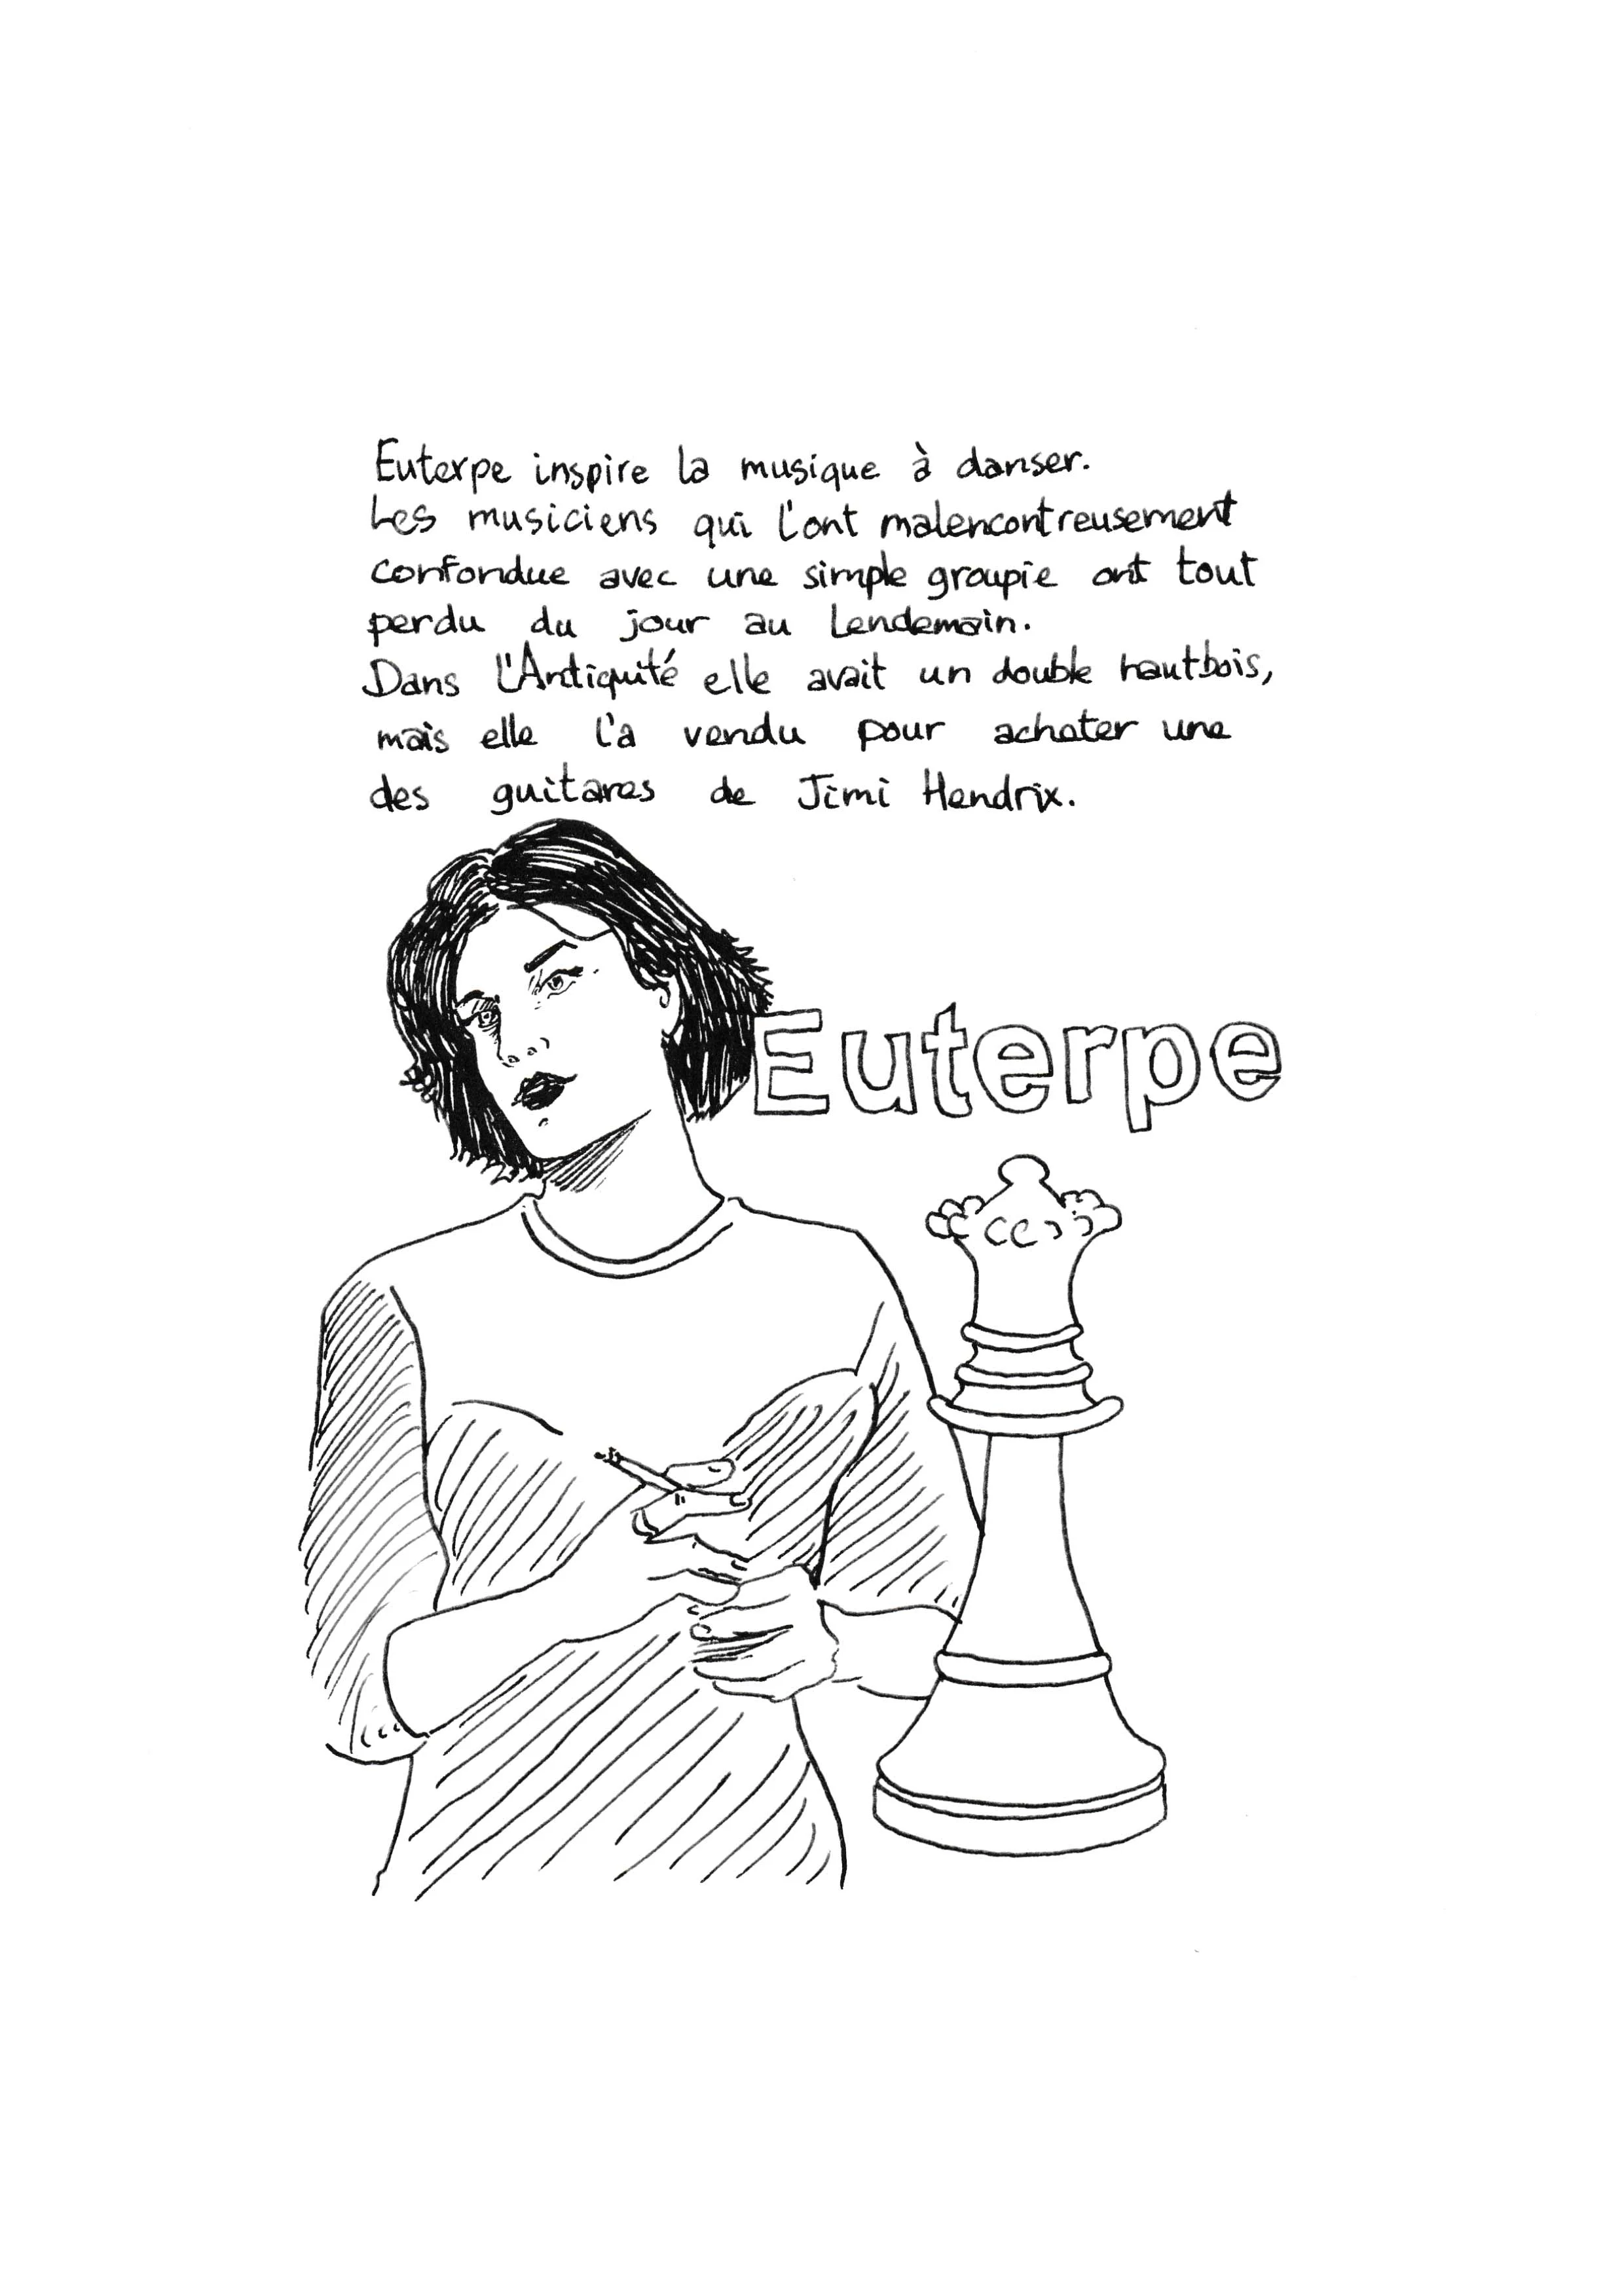 Euterpe inspire la musique à danser.
Les musiciens qui l'ont malencontreusement
confondue avec une simple groupie ont tout
perdu du jour au lendemain.
Dans l'Antiquité elle avait un double hautbois,
mais elle l'a vendu pour acheter une
des guitares de Jimi Hendrix.
Euterpe